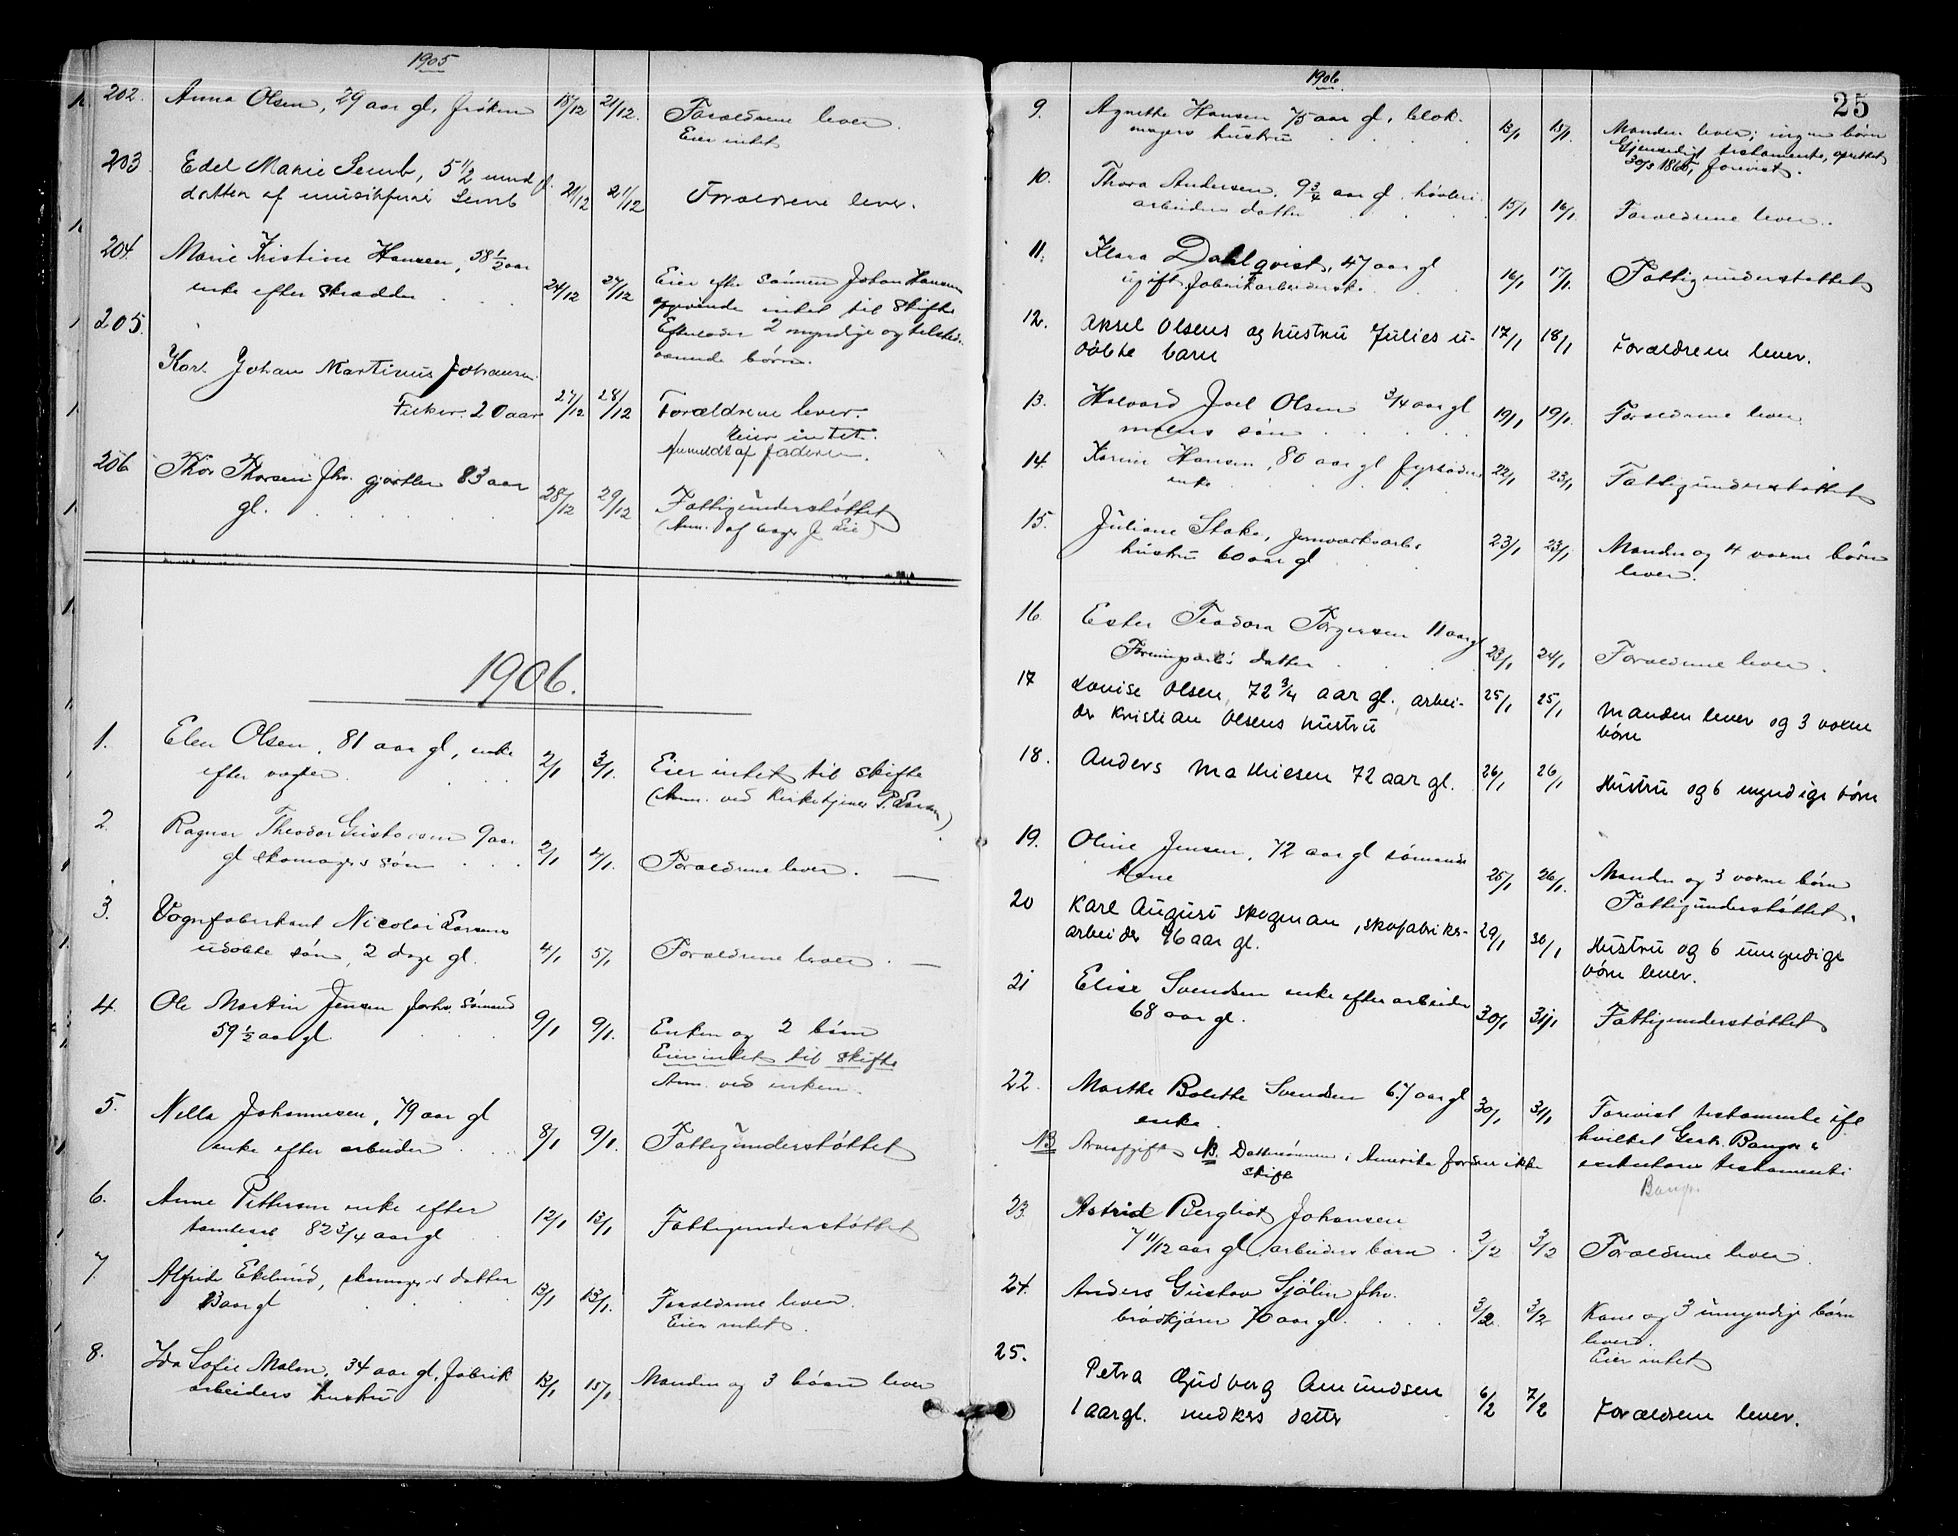 1905
202. Anna Olsen, 29 aar gl, frøken 18/12 21/12. Forældrene lever.
Eier intet
203 Edel Marie Semb, 5 1/2 mnd gl.
datter af Semb 21/12 21/12 Forældrene lever.
204. Marie Kristine Hansen, 58 1/2 aar
enke efter skrædder 24/12 27/12 Eier efter sønnen Johan Hansens
opgivende intet til skifte
Efterlader 2 myndige og tilsted-
værende børn.
205.
Karl Johan Martinus Johansen
Fisker. 20 aar 27/12 28/12 Forældrene lever.
Eier intet.
Anmeldt af faderen.
206 Thor Thorsen fhv. gjørtler 83 aar
gl. 28/12 29/12 Fattigunderstøttet
(Anm. af J. Lie)
1906.
1. Elen Olsen, 81 aar gl, enke
efter vogter. 2/1 3/1. Eier intet til skifte
(Anm. ved Kirketjener P. Larsen)
2. Ragnar Theodor Gustavsen 9 aar
gl skomagers søn 2/1 4/1. Forældrene lever. —
3. Vognfabrikant Nicolai Larsens
udøbte søn, 2 dage gl. 4/1 5/1 Forældrene lever. —
4. Ole Martin Jensen forhv. sømand
59 1/2 aar gl. 9/1 9/1. Enken og 2 børn
Eier intet til skifte
Anm. ved enken.
5. Nella Johannesen, 79 aar gl
enke efter arbeider 8/1 9/1. Fattigunderstøttet
6. Anne Pettersen enke efter
82 3/4 aar gl 12/1 13/1 Fattigunderstøttet
7 Alfride Ekelund, skomagers datter
13 aar gl 13/1 13/1. Forældrene lever.
Eier intet.
8. Ida Sofie Malm, 34 aar gl, fabrik
arbeiders hustru 13/1 15/1. Manden og 3 børn lever
1906.
25
9. Agnethe Hansen 75 aar gl, blok-
magers hustru 13/1 15/1. Manden lever; ingen børn
Gjensidigt testamente, oprettet
30/3 1865, forevist.
10. Thora Andersen, 9 3/4 aar gl. høvleri
arbeiders datter 15/1 16/1 Forældrene lever.
11. Klara Dahlqvist, 47 aar gl
ugift fabrikarbeiderske 16/1 17/1. Fattigunderstøttet
12. Aksel Olsens og hustru Julies u-
døbte barn 17/1 18/1 Forældrene lever.
13. Halvard Joel Olsen 3/4 aar gl
malers søn 19/1 19/1. Forældrene lever
14. Karine Hansen, 80 aar gl fyrbøder
enke 22/1 23/1 Fattigunderstøttet
15. Juliane Stake, jernværksarb.
hustru 60 aar gl 23/1 23/1 Manden og 4 voxne børn
lever.
16. Ester Teodora Torgersen 11 aar gl
datter 23/1 24/1 Forældrene lever.
17 Lovise Olsen, 72 3/4 aar gl., arbei-
der Kristian Olsens hustru 25/1 25/1 Manden lever og 3 voxne
børn
18. Anders Mathiesen 72 aar gl. 26/1 26/1 Hustru og 6 myndige børn
19. Oline Jensen, 72 aar gl sømands
kone 25/1 26/1. Manden og 3 voxne børn
Fattigunderstøttet.
20 Karl August Skogman, skofabriks-
arbeider 46 aar gl. 29/1 30/1 Hustru og 6 umyndige
børn lever.
21 Elise Svendsen enke efter arbeider
68 aar gl. 30/1 31/1 Fattigunderstøttet
22. Marthe Bolette Svendsen 67 aar gl
enke. 30/1 31/1 Forevist testamente ifl
hvilket Gert. Bangs er
NB Arveafgift. NB. Dattersønnen i Amerika ikke executor testamenti
skifte
Bangs.
23. Astrid Bergliot Johansen
7 11/12 aar gl arbeiders barn 2/2 3/2 Forældrene lever.
24. Anders Gustav Sjølin fhv.
brødkjører 70 aar gl. 3/2. 3/2 Kone og 3 umyndige børn
lever.
Eier intet
25. Petra Gudborg Amundsen
1 aar gl. datter 6/2 7/2 Forældrene lever.